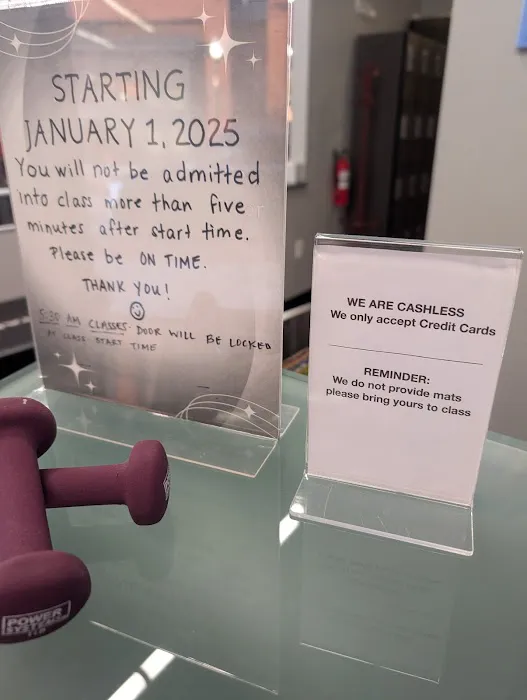 STARTING
JANUARY 1, 2025
You will not be admitted
into class more than five
minutes after start time.
Please be ON TIME.
THANK YOU!
5:30 AM CLASSES- DOOR WILL BE LOCKED
AT CLASS START TIME
WE ARE CASHLESS
We only accept Credit Cards
REMINDER:
We do not provide mats
please bring yours to class
POWER